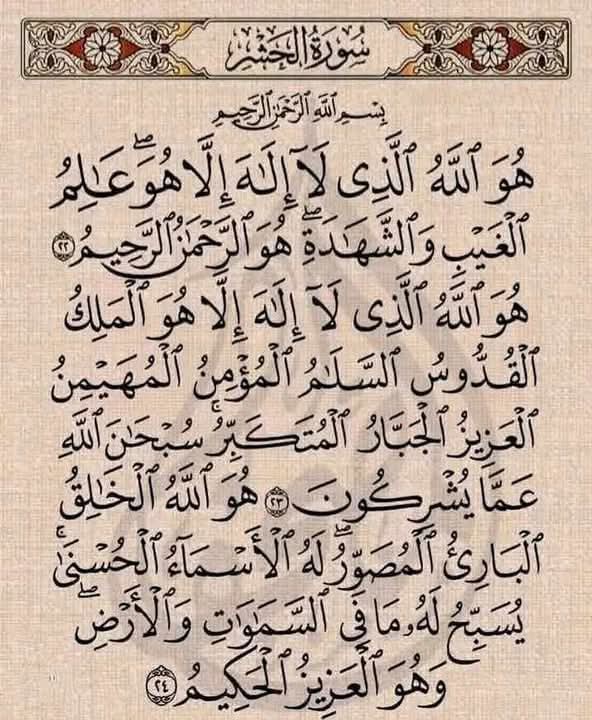 سُورَةُ الحَشْرِ
بِسْمِ ٱللَّهِ ٱلرَّحْمَٰنِ ٱلرَّحِيمِ
هُوَ ٱللَّهُ ٱلَّذِى لَآ إِلَٰهَ إِلَّا هُوَۖ عَٰلِمُ
ٱلْغَيْبِ وَٱلشَّهَٰدَةِۖ هُوَ ٱلرَّحْمَٰنُ ٱلرَّحِيمُ ٢٢
هُوَ ٱللَّهُ ٱلَّذِى لَآ إِلَٰهَ إِلَّا هُوَ ٱلْمَلِكُ
ٱلْقُدُّوسُ ٱلسَّلَٰمُ ٱلْمُؤْمِنُ ٱلْمُهَيْمِنُ
ٱلْعَزِيزُ ٱلْجَبَّارُ ٱلْمُتَكَبِّرُۚ سُبْحَٰنَ ٱللَّهِ
عَمَّا يُشْرِكُونَ ٢٣ هُوَ ٱللَّهُ ٱلْخَٰلِقُ
ٱلْبَارِئُ ٱلْمُصَوِّرُۖ لَهُ ٱلْأَسْمَآءُ ٱلْحُسْنَىٰۚ
يُسَبِّحُ لَهُۥ مَا فِى ٱلسَّمَٰوَٰتِ وَٱلْأَرْضِۖ
وَهُوَ ٱلْعَزِيزُ ٱلْحَكِيمُ ٢٤